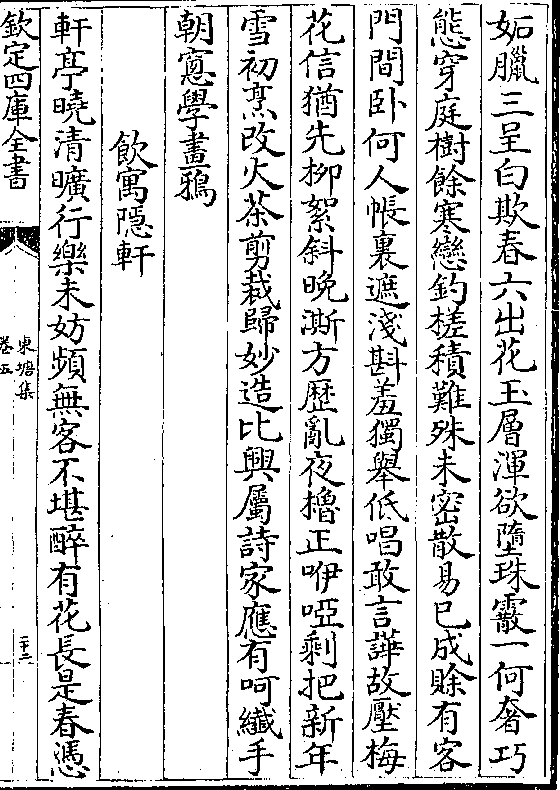 妬臘三呈白欺春六出花玉層渾欲墮珠霰一何奢巧
態穿庭樹餘寒戀釣槎積難殊未密散易已成賖有客
門間卧何人帳裏遮淺斟羞獨舉低唱敢言譁故壓梅
花信猶先柳絮斜晚澌方歴亂夜櫓正咿啞剩把新年
雪初烹改火茶剪裁歸妙造比興屬詩家應有呵纖手
朝窻學畫鴉
飲寓隱軒
軒亭曉清曠行樂未妨頻無客不堪醉有花長是春憑
欽定四庫全書
東塘集
卷五
二十二